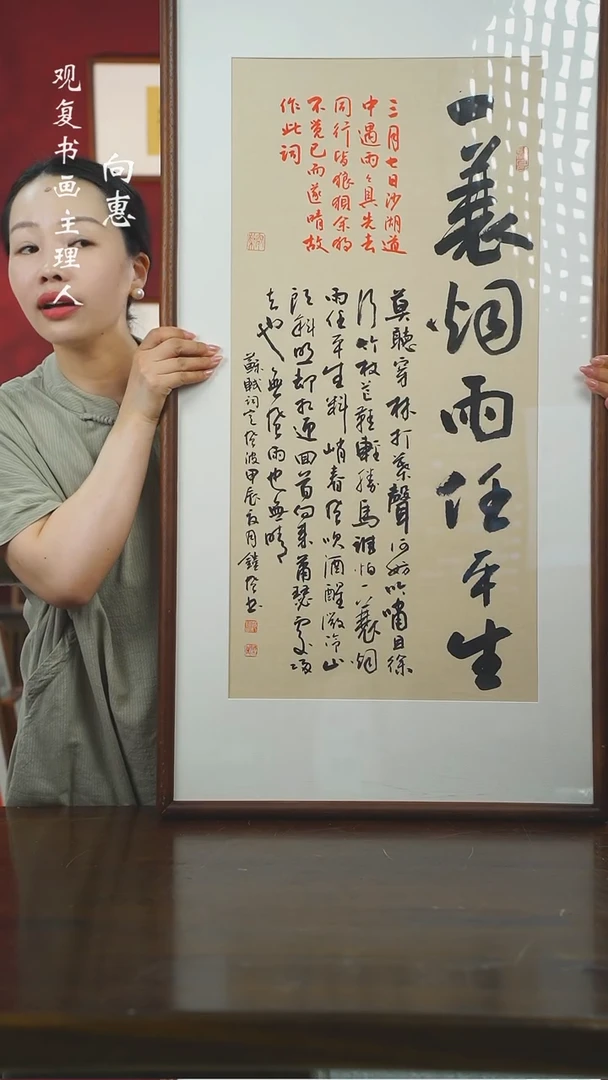 观复书画主理人
向惠
一蓑烟雨任平生
三月七日沙湖道
中遇雨々具先去
同行皆狼狽余独
不觉已而遂晴故
作此词
莫聽穿林打葉聲何妨吟嘯且徐
行竹杖芒鞋輕勝馬誰怕一蓑烟
雨任平生料峭春风吹酒醒微冷山
头斜照却相迎回首向来蕭瑟處归
去也無风雨也無晴
蘇軾词定风波甲辰夏月